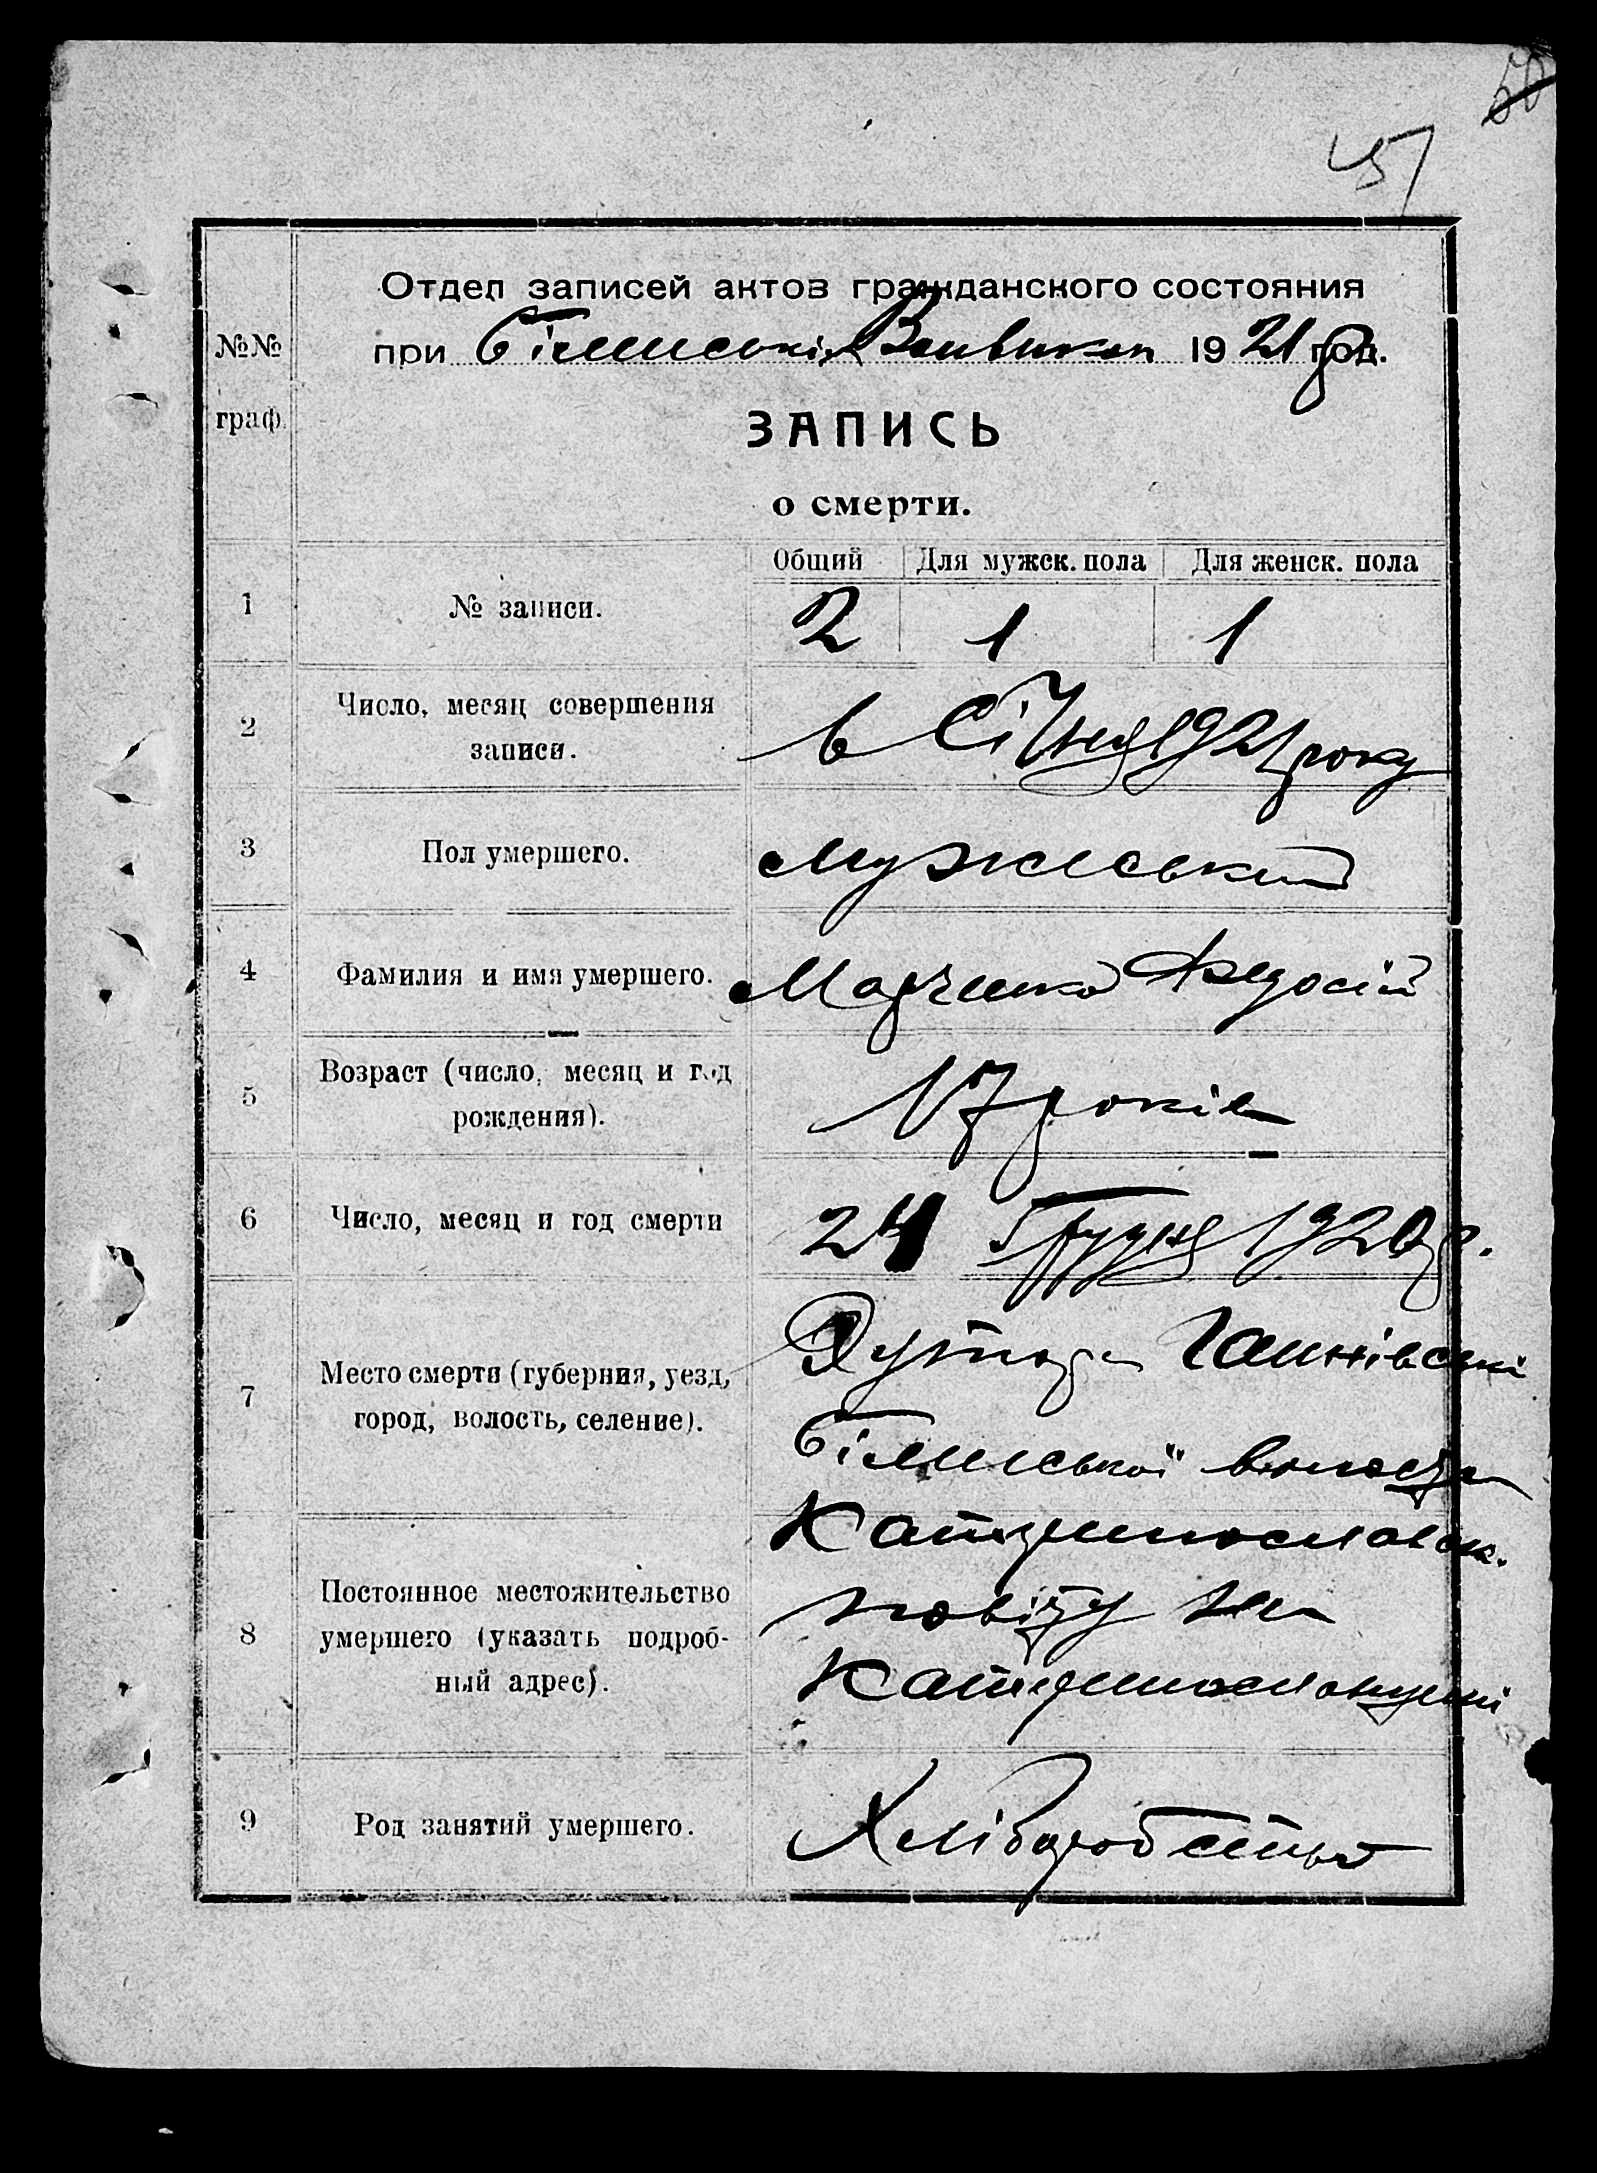 50
57
Отдел записей актов гражданского состояния
№№ граф.
при 1921 год.
ЗАПИСЬ
о смерти.
Общий Для мужск. пола Для женск. пола
1 № записи. 2 1 1
2 Число, месяц совершения
записи.
6 Січня 1921 року
3 Пол умершего. Мужеський
4 Фамилия и имя умершего. Марченко Федосій
5 Возраст (число, месяц и год
рождения).
17 років
6 Число, месяц и год смерти 24 Грудня 1920 р.
7 Место смерти (губерния, уезд,
город, волость, селение).
Хутора Ганнівські
волости
Катеринославск.
8 Постоянное местожительство
умершего (указать подроб-
ный адрес).
повіту на
Катеринославщині
9 Род занятий умершего. Хліборобство